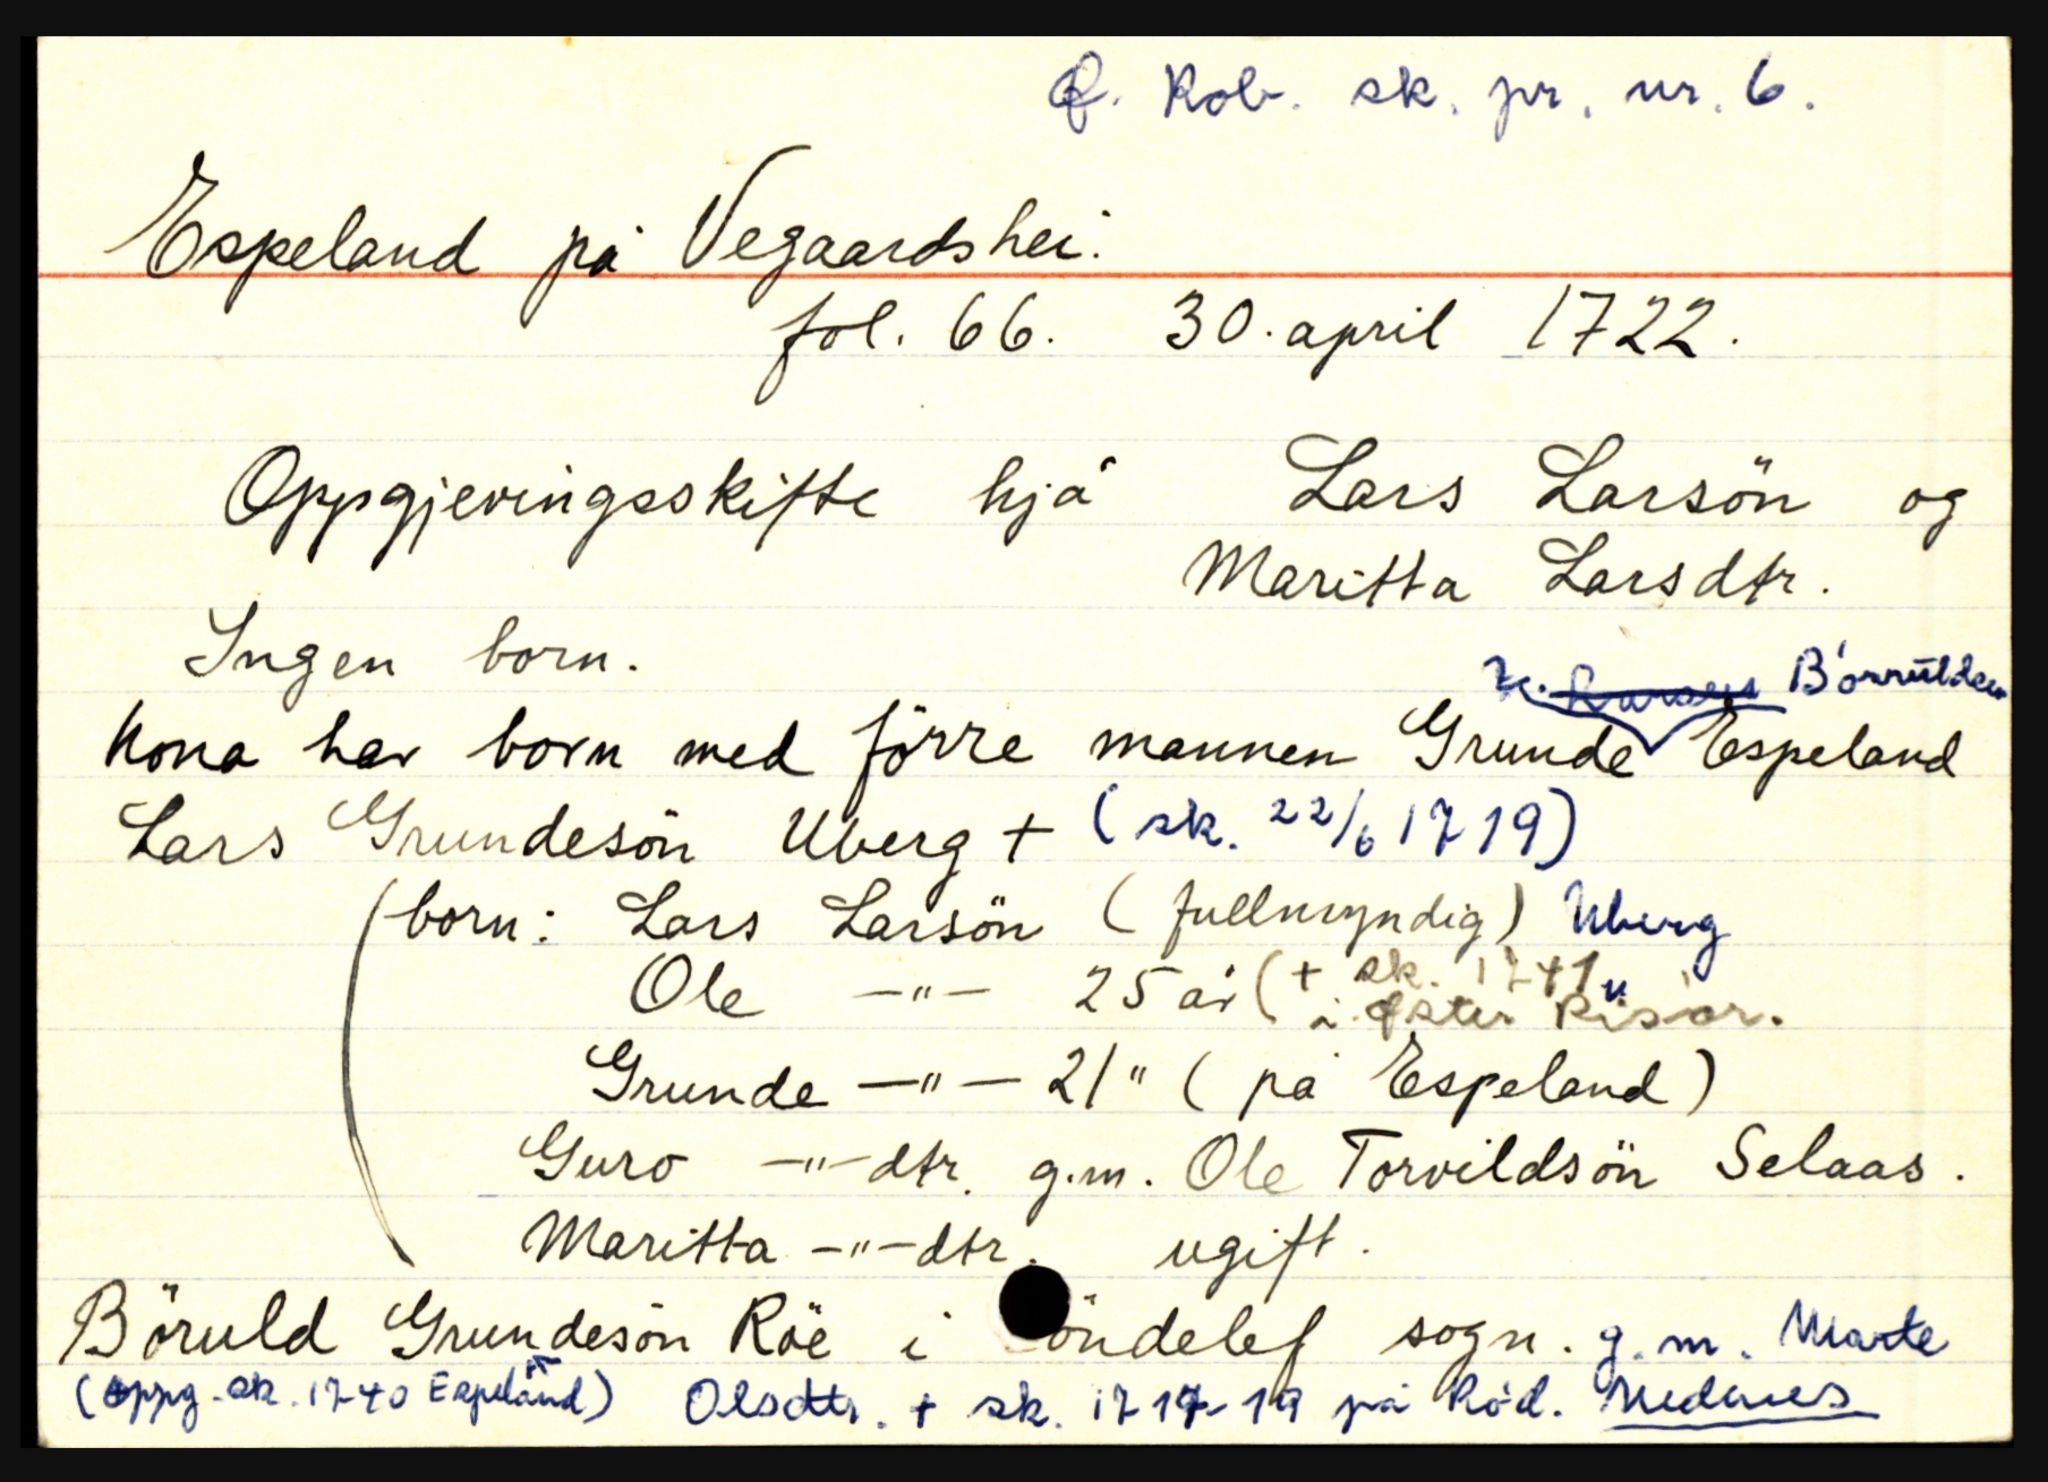 Q. Rob. sk. pr. nr. 6.
Espeland på Vegaardshei.
fol. 66. 30. april 1722.
Oppgjeringsskifte hjå Lars Larsön og
Maritta Larsdtr.
Ingen born.
Larsen Börruldsen
Kona har born med förre mannen Grunde Espeland
Lars Grundesön Uberg + (sk. 22/6 1719)
born: Lars Larsön (fullmyndig) Uberg
Ole —"— 25 år (+ sk. 1741
i Öster Risör.
Grunde —"— 21 " (på Espeland)
Guro —"—dtr. g.m. Ole Torvildsön Selaas.
Maritta —"—dtr. ugift.
Böruld Grundesön Röe i öndelef sogn. g.m. Marte
(oppg. sk. 1740 Espeland) Olsdtr. + sk. 1717-19 på Röd. Nedenes